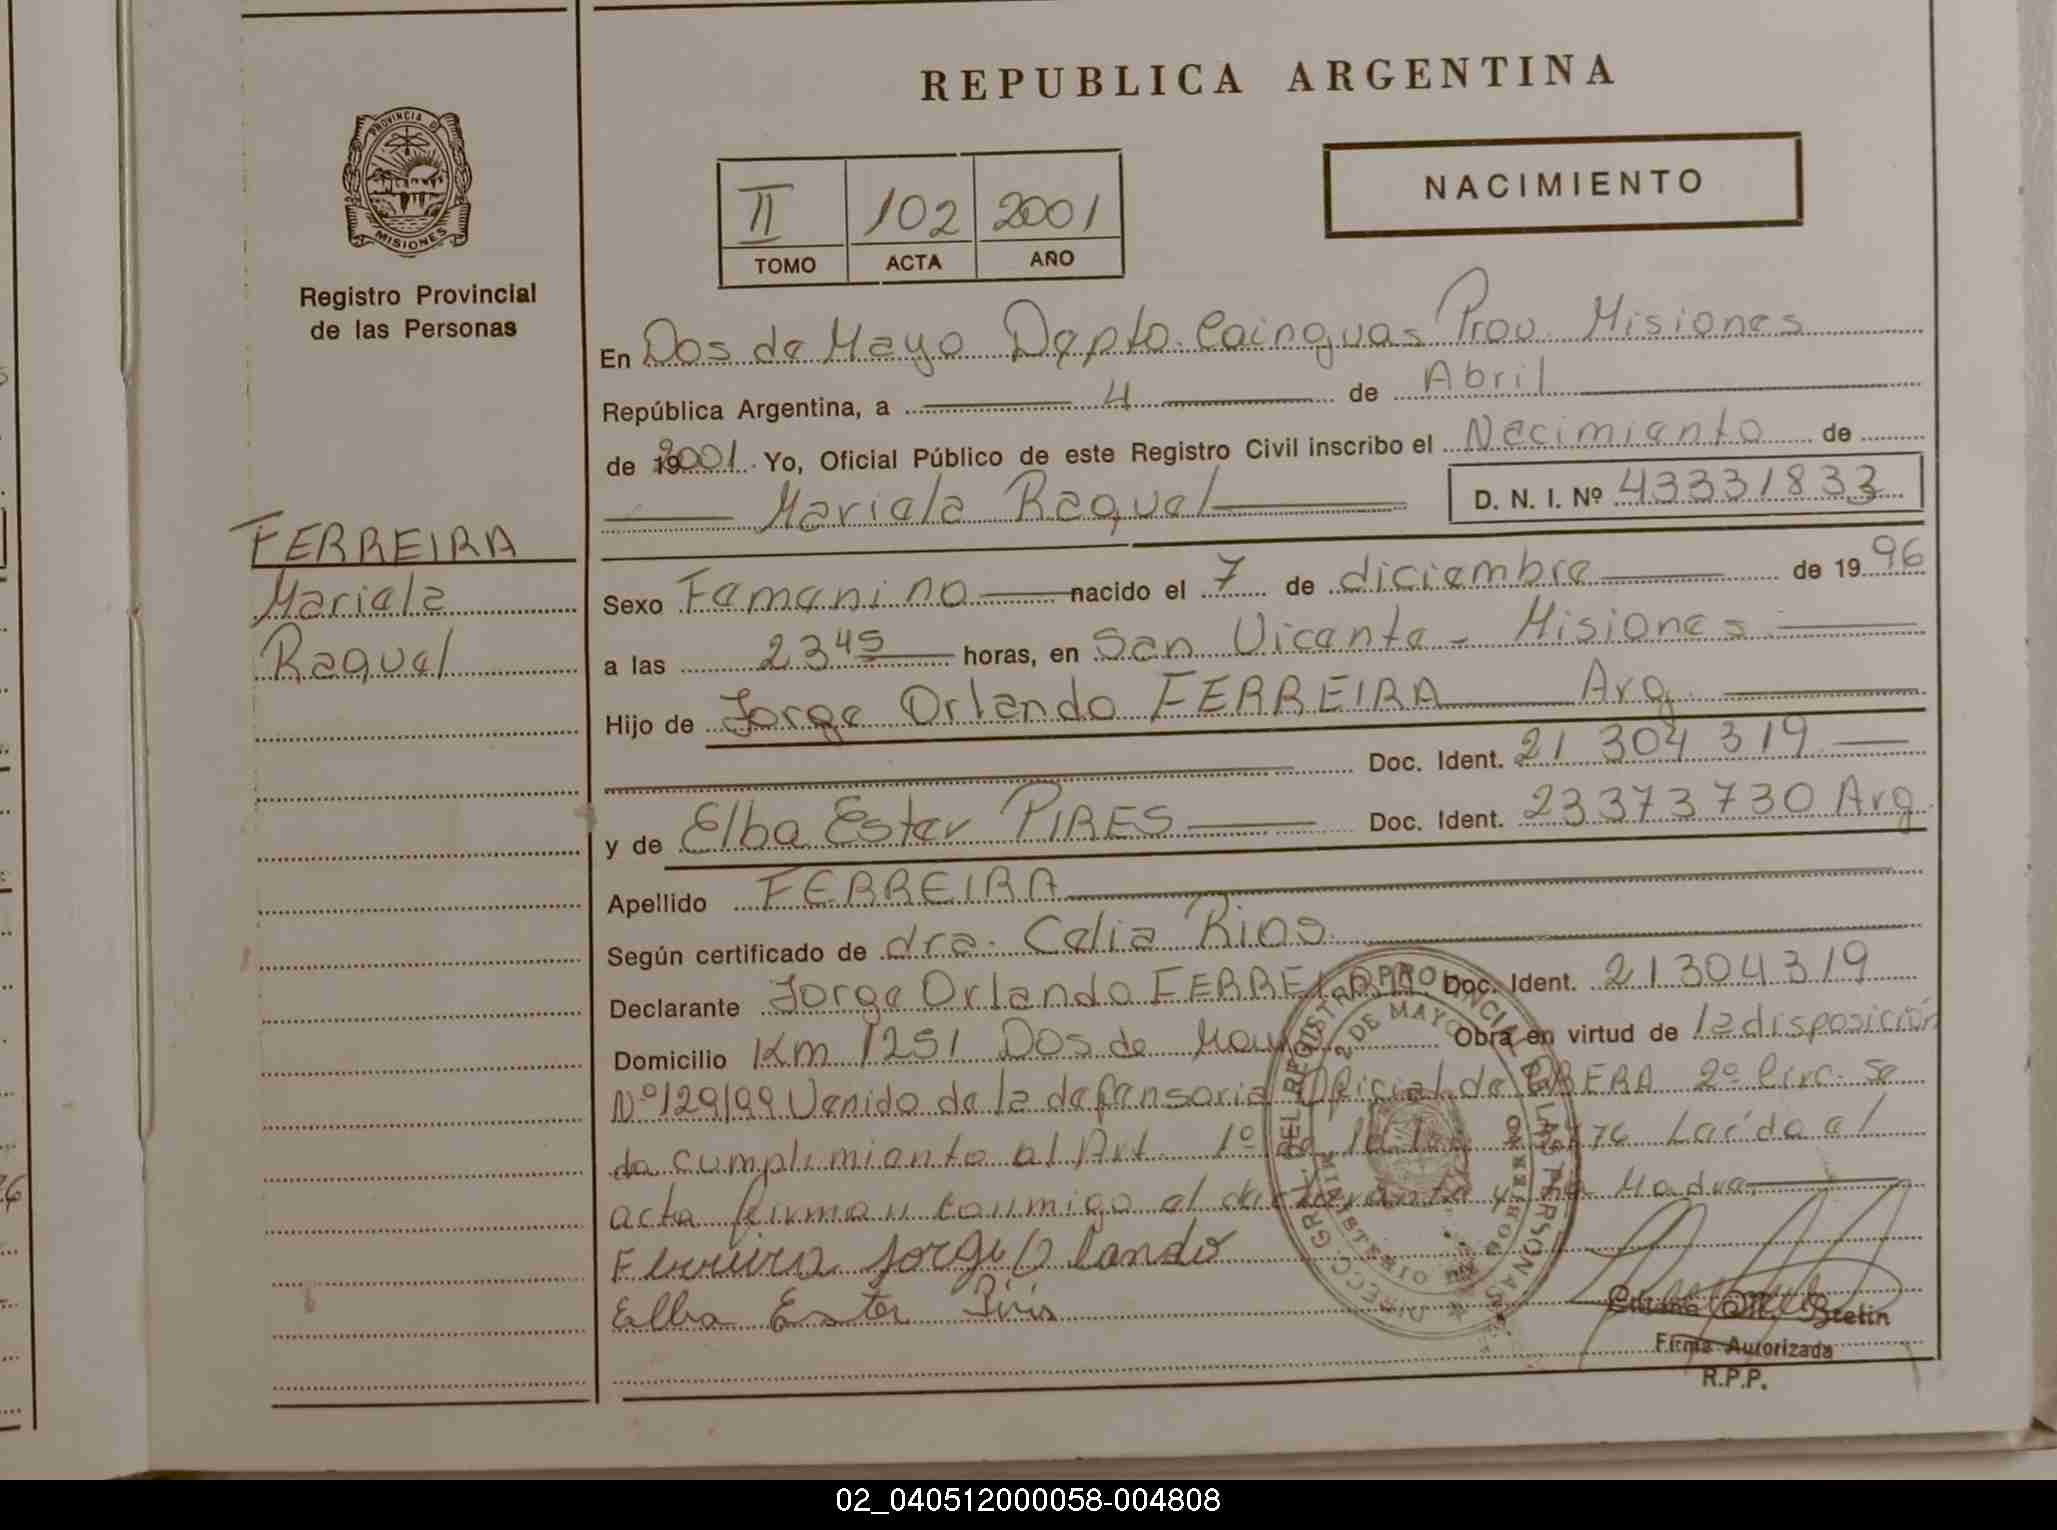 REPUBLICA ARGENTINA
PROVINCIA DE
MISIONES
Registro Provincial
de las Personas
NACIMIENTO
II 102 2001
TOMO ACTA AÑO
En Dos de Mayo Depto. Cainguas Prov. Misiones
República Argentina, a 4 de Abril
de 192001. Yo, Oficial Público de este Registro Civil inscribo el Nacimiento de
Mariela Raquel D. N. I. Nº 43331833
FERREIRA
Mariela
Raquel
Sexo Femenino nacido el 7 de diciembre de 1996
a las 23 45 horas, en San Vicente - Misiones
Hijo de Jorge Orlando FERREIRA Arg
Doc. Ident. 21 304 319
y de Elba Ester PIRES Doc. Ident. 23373730 Arg
Apellido FERREIRA
Según certificado de dra. Celia Rios
Declarante Jorge Orlando FERREIRA Doc. Ident. 21304319
Domicilio Km 1251 Dos de Mayo Obra en virtud de la disposición
Nº 129/99 Venido de la defensoria Oficial de OBERA 2º Circ. Se
da cumplimiento al Art. 1º Leída el
acta firman conmigo el declarante y la Madre.
Ferreira Jorge Orlando
Elba Ester Piris
DIRECC. GRAL. DEL REGISTRO PROVINCIAL DE LAS PERSONAS
2 DE MAYO
MINISTERIO DE GOBIERNO
Bretin
Firma Autorizada
R.P.P.
02_040512000058-004808